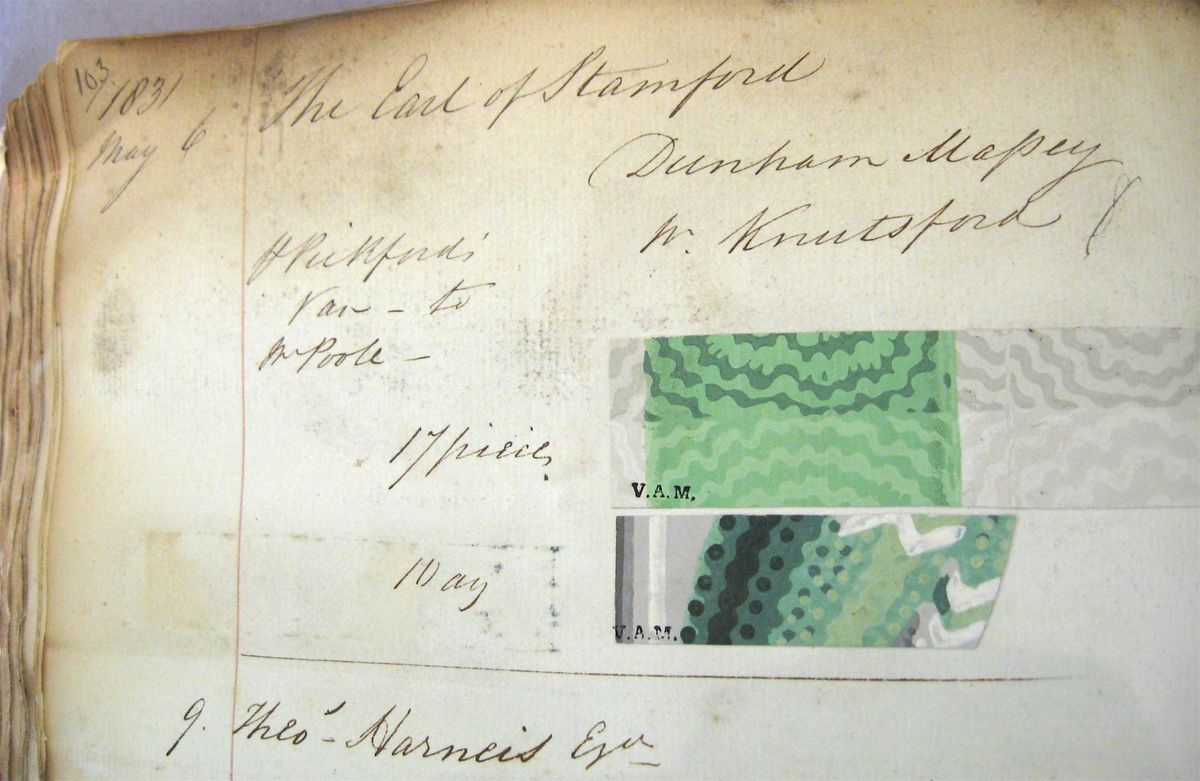 103.
1831
May 6
The Earl of Stamford
Dunham Massey
Nr. Knutsford
Pickfords
Van - to
Mr Poole -
17 pieces
V.A.M.
10 ay
V.A.M.
9. Theos - Harneis Esqr